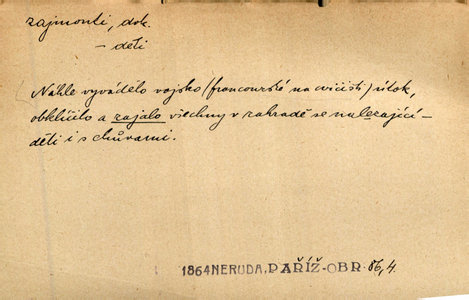 zajmouti, dok.
– děti
Náhle vyvádělo vojsko (francouzské na cvičišti) útok,
obklíčilo a zajalo všechny v zahradě se nalezající –
děti i s chůvami.
1864 NERUDA, PAŘÍŽ-OBR. 86,4.